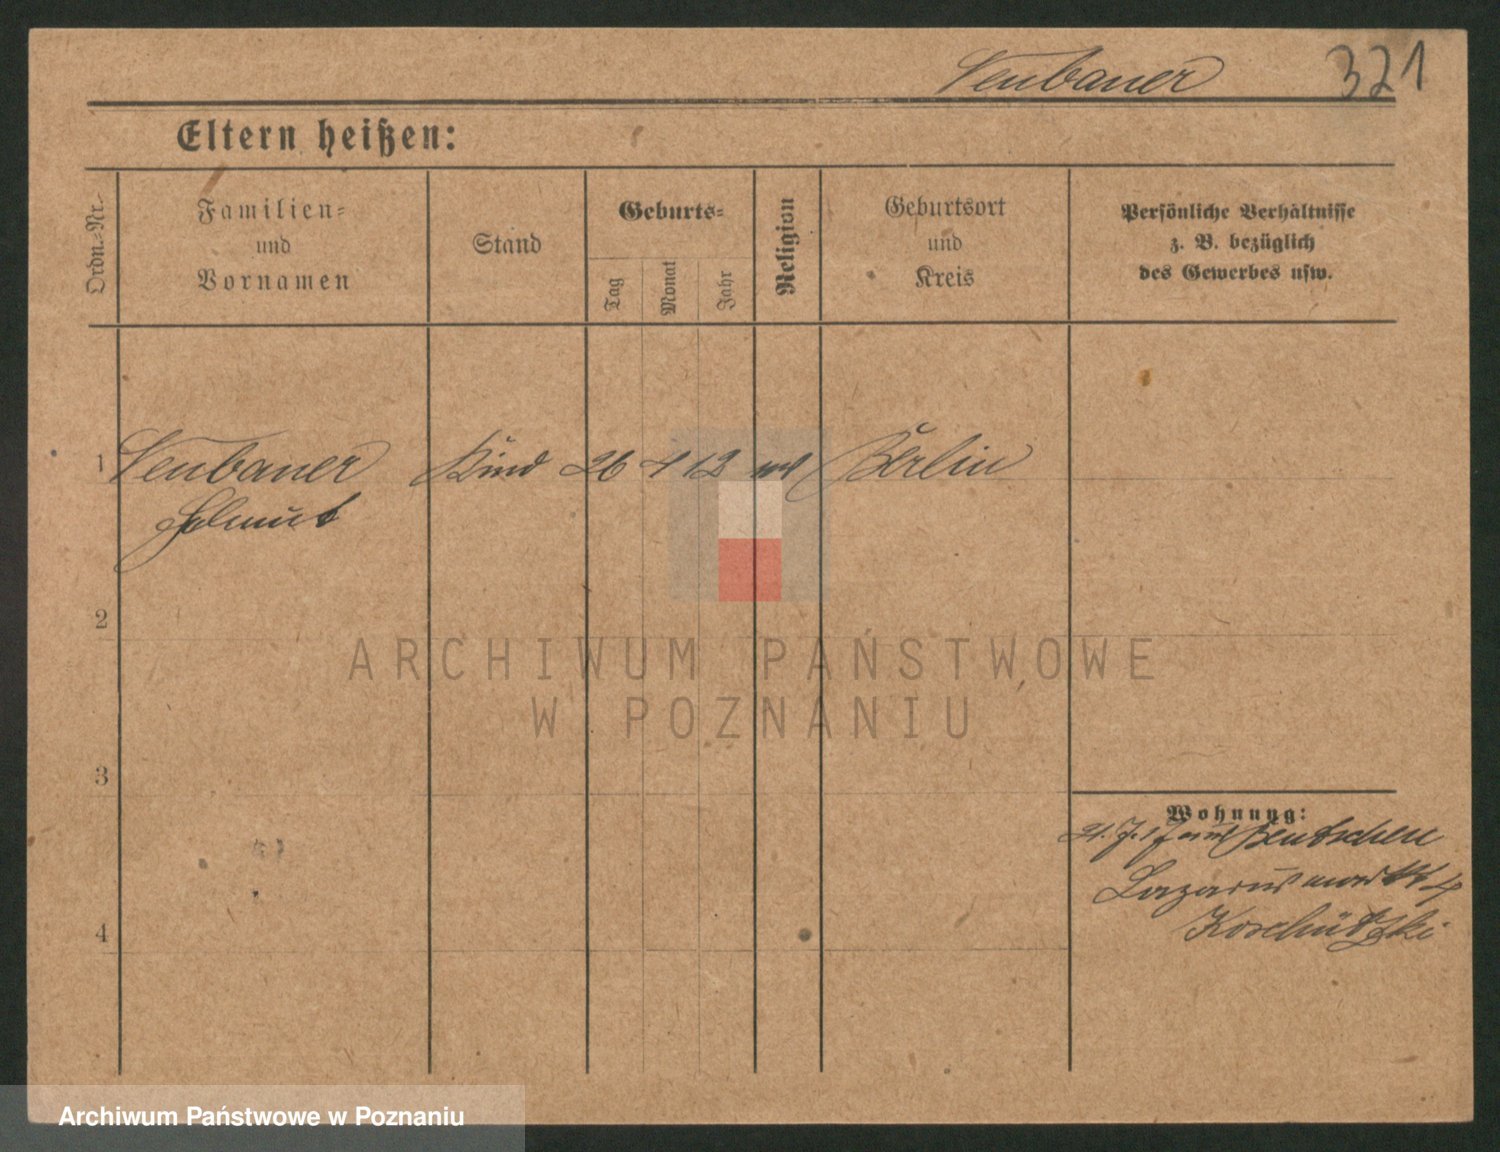 Neubauer 321
Eltern heißen:
Ordn.-Nr.
Familien-
und
Vornamen
Stand
Geburts-
Tag
Monat
Jahr
Religion
Geburtsort
und
Kreis
Persönliche Verhältnisse
z. B. bezüglich
des Gewerbes usw.
1 Neubauer Kind 26 4 12 Berlin
Helmut
2
3
4
Wohnung:
21. 7. 17 aus Bentschen
Lazarusmarkt 4
Koschützki
ARCHIWUM PAŃSTWOWE
W POZNANIU
Archiwum Państwowe w Poznaniu